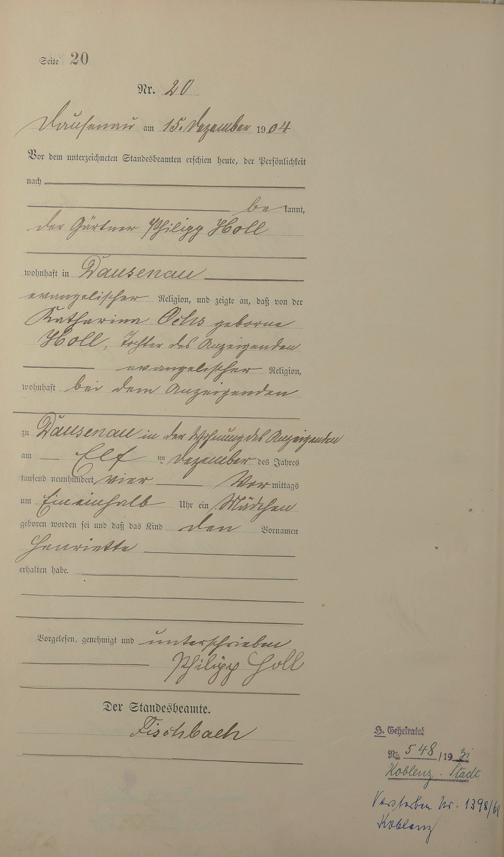 Seite 20
Nr. 20
Dausenau am 15. Dezember 1904
Vor dem unterzeichneten Standesbeamten erschien heute, der Persönlichkeit
nach
be kannt,
der Gärtner Philipp Holl
wohnhaft in Dausenau
evangelischer Religion, und zeigte an, daß von der
Katharina Ochs geborne
Holl, Tochter des Anzeigenden
evangelischer Religion,
wohnhaft bei dem Anzeigenden
zu Dausenau in der Wohnung des Anzeigenden
am Elf ten Dezember des Jahres
tausend neunhundert vier Vor mittags
um Eineinhalb Uhr ein Mädchen
geboren worden sei und daß das Kind den Vornamen
Henriette
erhalten habe.
Vorgelesen, genehmigt und unterschrieben
Philipp Holl
Der Standesbeamte.
Fischbach
Nr. 548/19
Koblenz - Stadt
Verstorben Nr. 1398/61
Koblenz